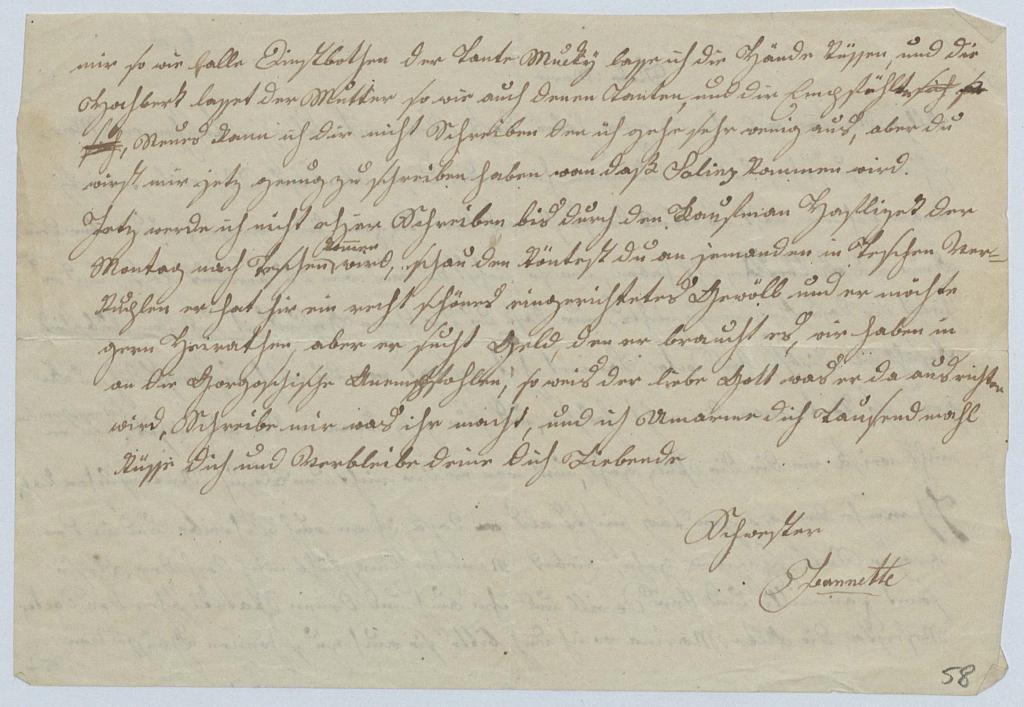 mir so wie alle Dinstbothen der Tante Mucky lasse ich die Hände Küssen, und die
Hochberk lasset der Mutter so wie auch denen Tanten, und dir Empfählen sich
Neues kann ich dir nicht Schreiben den ich gehe sehr wenig aus, aber du
wirst mir jetz genug zu schreiben haben wan daß Kommen wird.
Jetz werde ich nicht eher Schreiben bis durch den Kaufman der
Montag nach Teschen kommen wird, schau den Köntest du an jemanden in Teschen Ver-
Kuplen er hat hir ein recht schönes eingerichtetes Gewölb und er möchte
gern Heirathen, aber er sucht Geld, den er braucht es, wir haben in
an die Anempfohlen, so weis der liebe Gott was er da ausrichten
wird, Schreibe mir was ihr macht, und ich Umarme dich Tausendmahl
Küsse dich und Verbleibe deine dich Liebende
Schwester
Jeannette
58